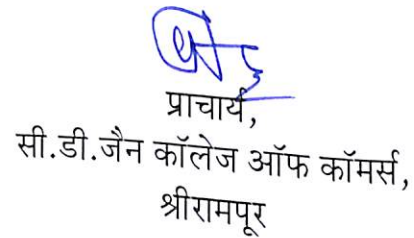 प्राचार्य,
सी.डी.जैन कॉलेज ऑफ कॉमर्स,
श्रीरामपूर